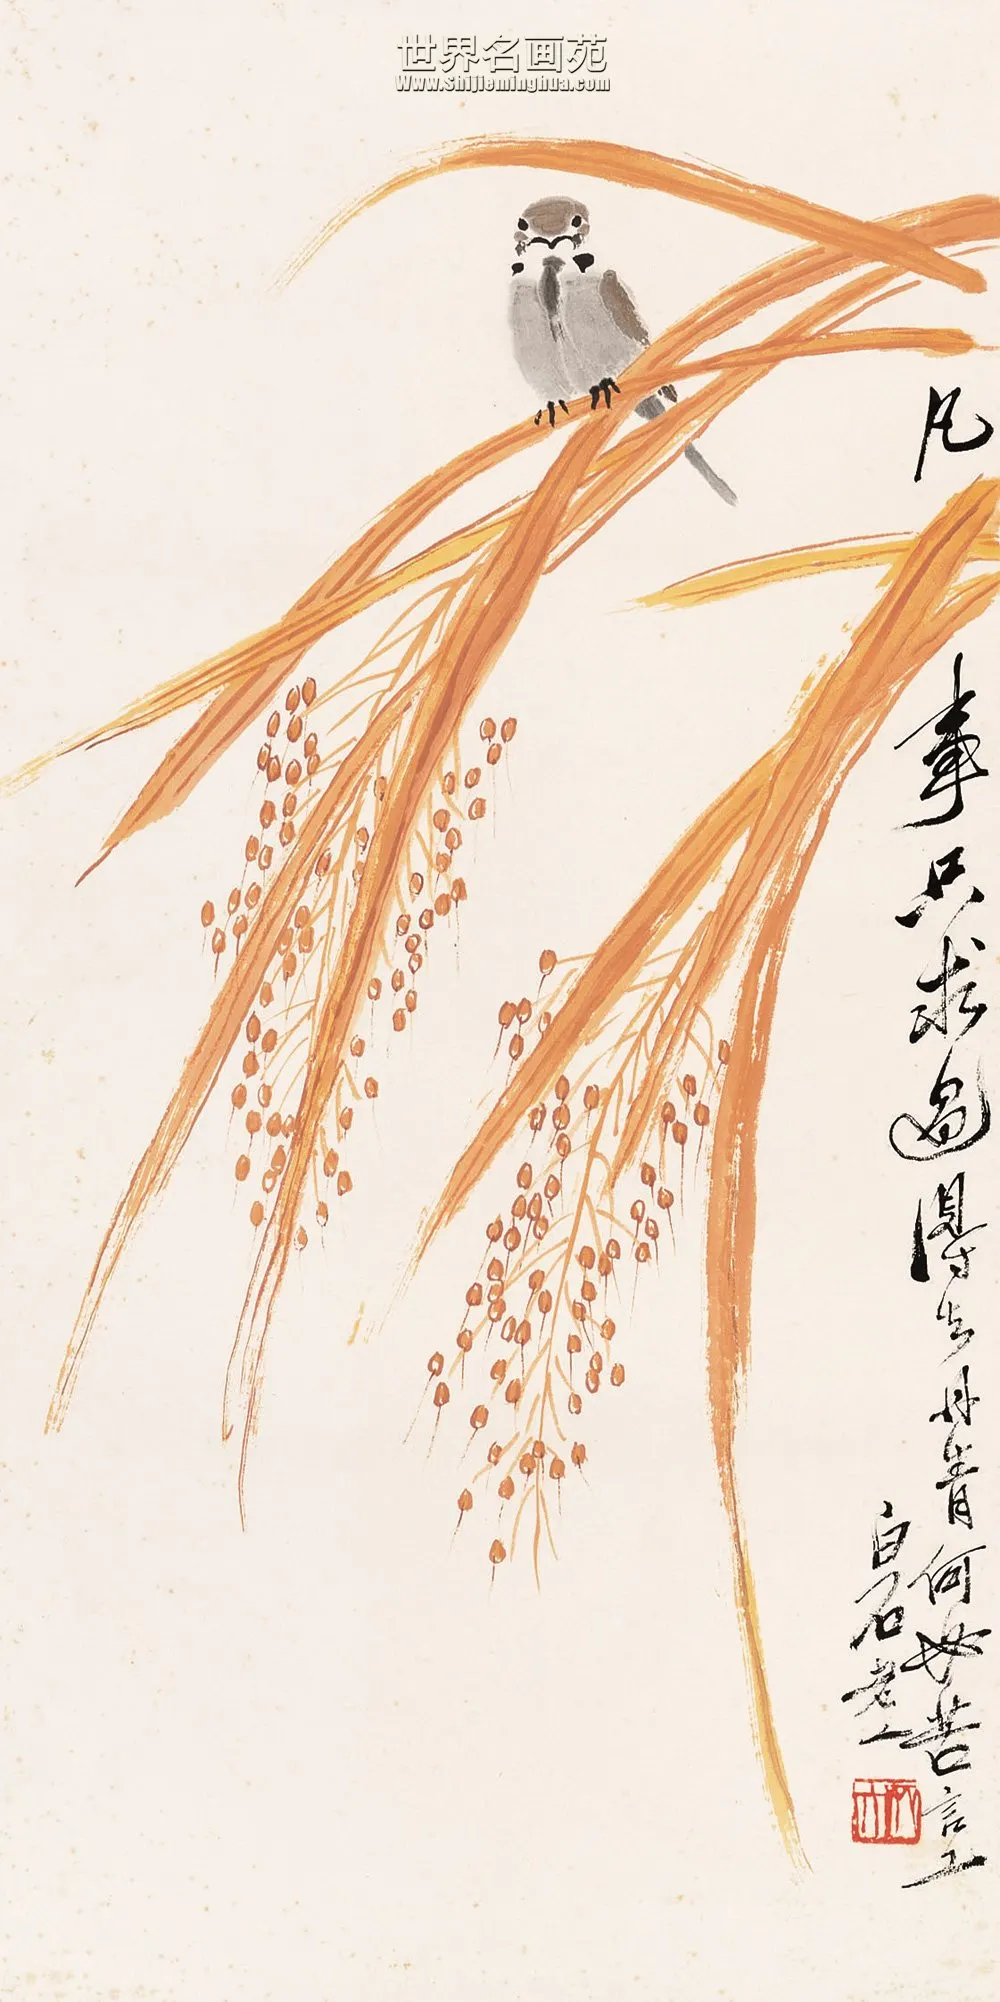 世界名画苑
www.Shijieminghua.com
凡事只求過得去丹青何必苦言工
白石老人